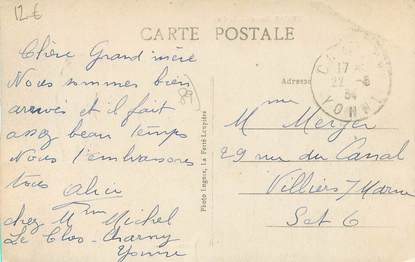 12€
CARTE POSTALE
Chère Grand'mère
Nous sommes bien
arrivés et il fait
assez beau temps
Nous t'embrassons
tous Alice
chez Mme Michel
Le Clos - Charny
Yonne
Photo Lugnot, La Ferté-Loupière
Adresse
17
22 -8
34
YONNE
M
29 rue du Canal
Villiers s/Marne
S et O